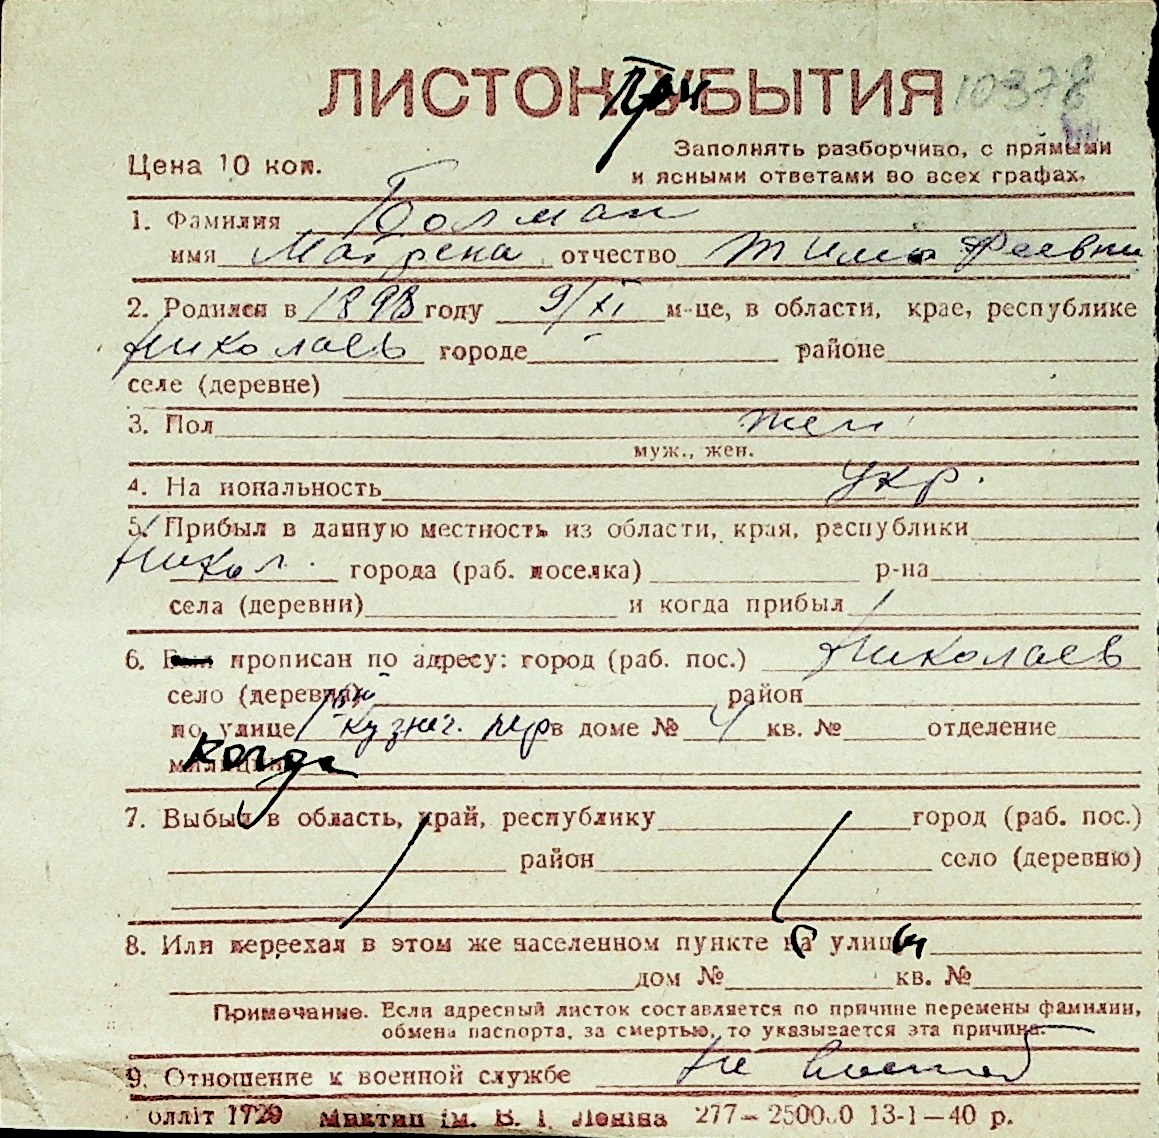 ЛИСТОК УБЫТИЯ При 10378
Цена 10 коп. Заполнять разборчиво, с прямыми
и ясными ответами во всех графах.
1. Фамилия Болман
имя Матрена отчество Тимофеевна
2. Родился в 1893 году 9/XI м-це, в области, крае, республике
Николаев городе районе
селе (деревне)
3. Пол жен
муж., жен.
4. На иональность укр.
5. Прибыл в данную местность из области, края, республики
Никол. города (раб. поселка) р-на
села (деревни) и когда прибыл
6. Был прописан по адресу: город (раб. пос.) Николаев
село (деревня) район
по улице кузнеч. пер в доме № 4 кв. № отделение
милиции когда
7. Выбыл в область, край, республику город (раб. пос.)
район село (деревню)
8. Или переехал в этом же населенном пункте на улицу
дом № кв. №
Примечание. Если адресный листок составляется по причине перемены фамилии,
обмена паспорта, за смертью, то указывается эта причина.
9. Отношение к военной службе не
олліт 1729 Миктип ім. В. І. Леніна 277—250000 13-1—40 р.